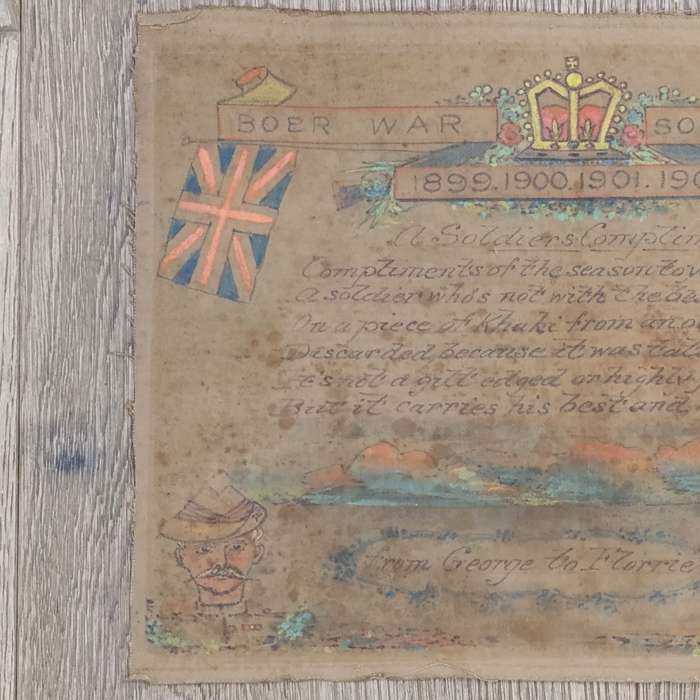 BOER WAR SO
1899.1900.1901.190
A Soldiers Complim
Compliments of the season to
A soldier who's not with the be
On a piece of Khaki from an o
Discarded because it was tat
It's not a gilt edged or highly
But it carries his best and
from George to Florrie